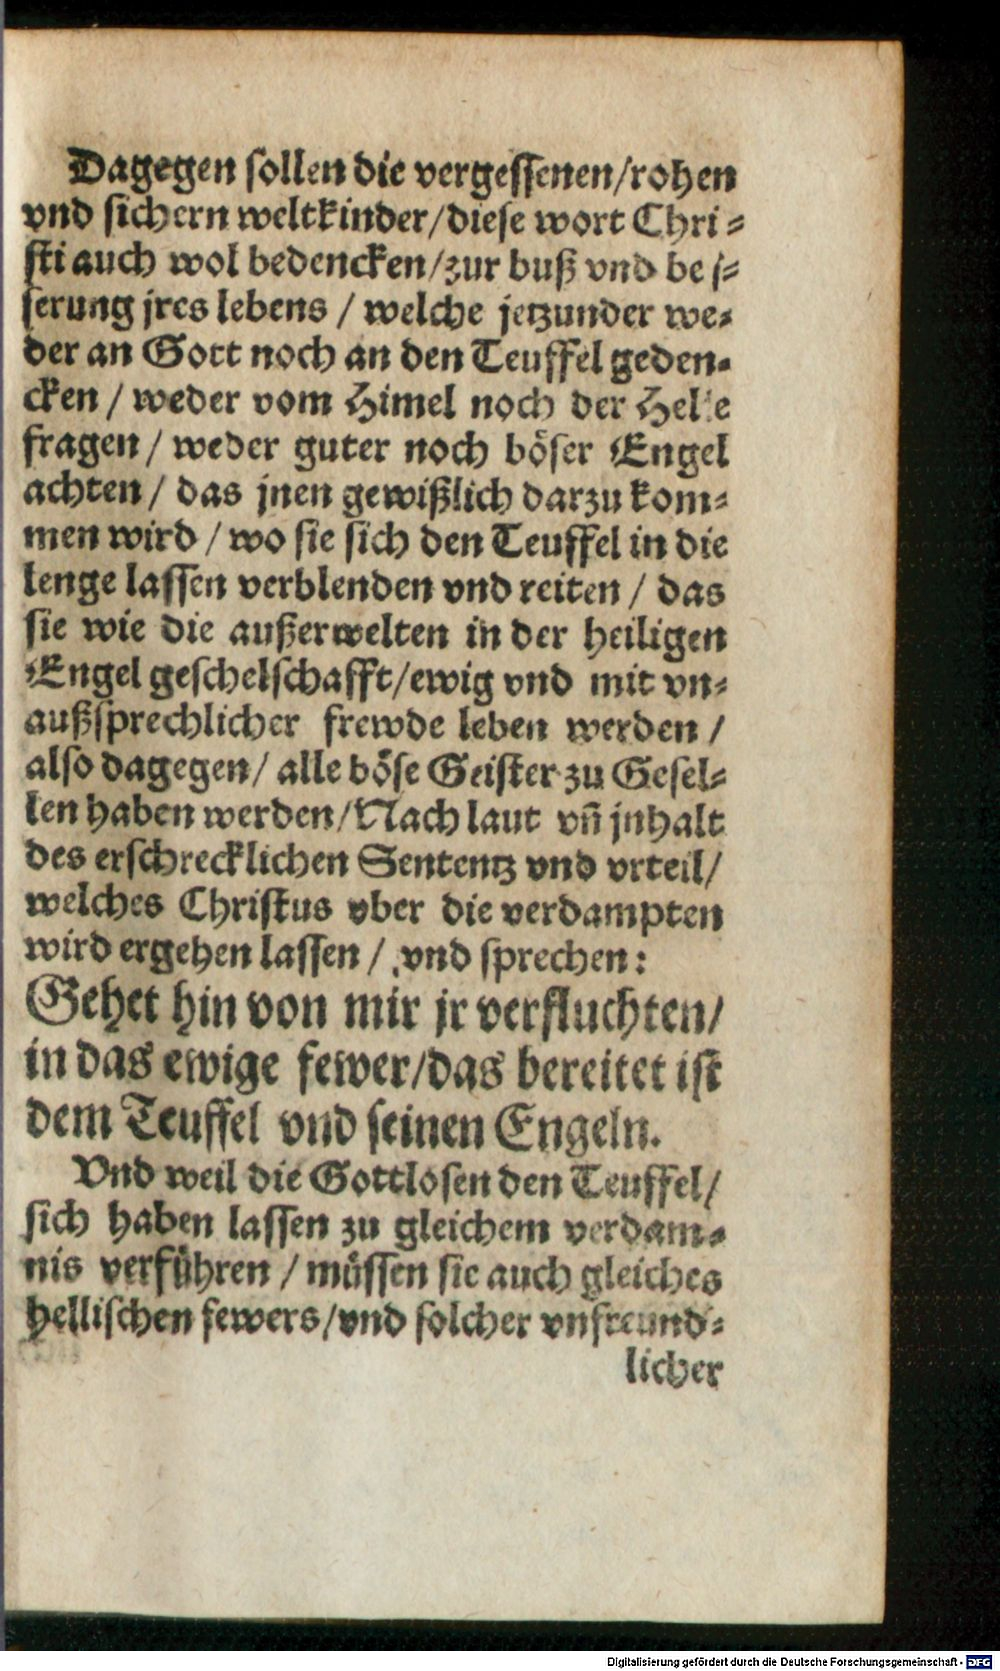 Dagegen sollen die vergessenen/rohen
vnd sichern weltkinder/diese wort Chri⸗
sti auch wol bedencken/zur buß vnd bes⸗
serung jres lebens / welche jetzunder we⸗
der an Gott noch an den Teuffel geden⸗
cken / weder vom Himel noch der Helle
fragen / weder guter noch böser Engel
achten / das jnen gewißlich darzu kom⸗
men wird / wo sie sich den Teuffel in die
lenge lassen verblenden vnd reiten / das
sie wie die außerwelten in der heiligen
Engel geschelschafft/ewig vnd mit vn⸗
außsprechlicher frewde leben werden /
also dagegen/ alle böse Geister zu Gesel⸗
len haben werden/Nach laut vñ jnhalt
des erschrecklichen Sententz vnd vrteil/
welches Christus vber die verdampten
wird ergehen lassen / vnd sprechen:
Gehet hin von mir jr verfluchten/
in das ewige fewer/das bereitet ist
dem Teuffel vnd seinen Engeln.
Vnd weil die Gottlosen den Teuffel/
sich haben lassen zu gleichem verdam⸗
nis verführen / müssen sie auch gleiches
hellischen fewers/vnd solcher vnfreund⸗
licher
Digitalisierung gefördert durch die Deutsche Forschungsgemeinschaft - DFG